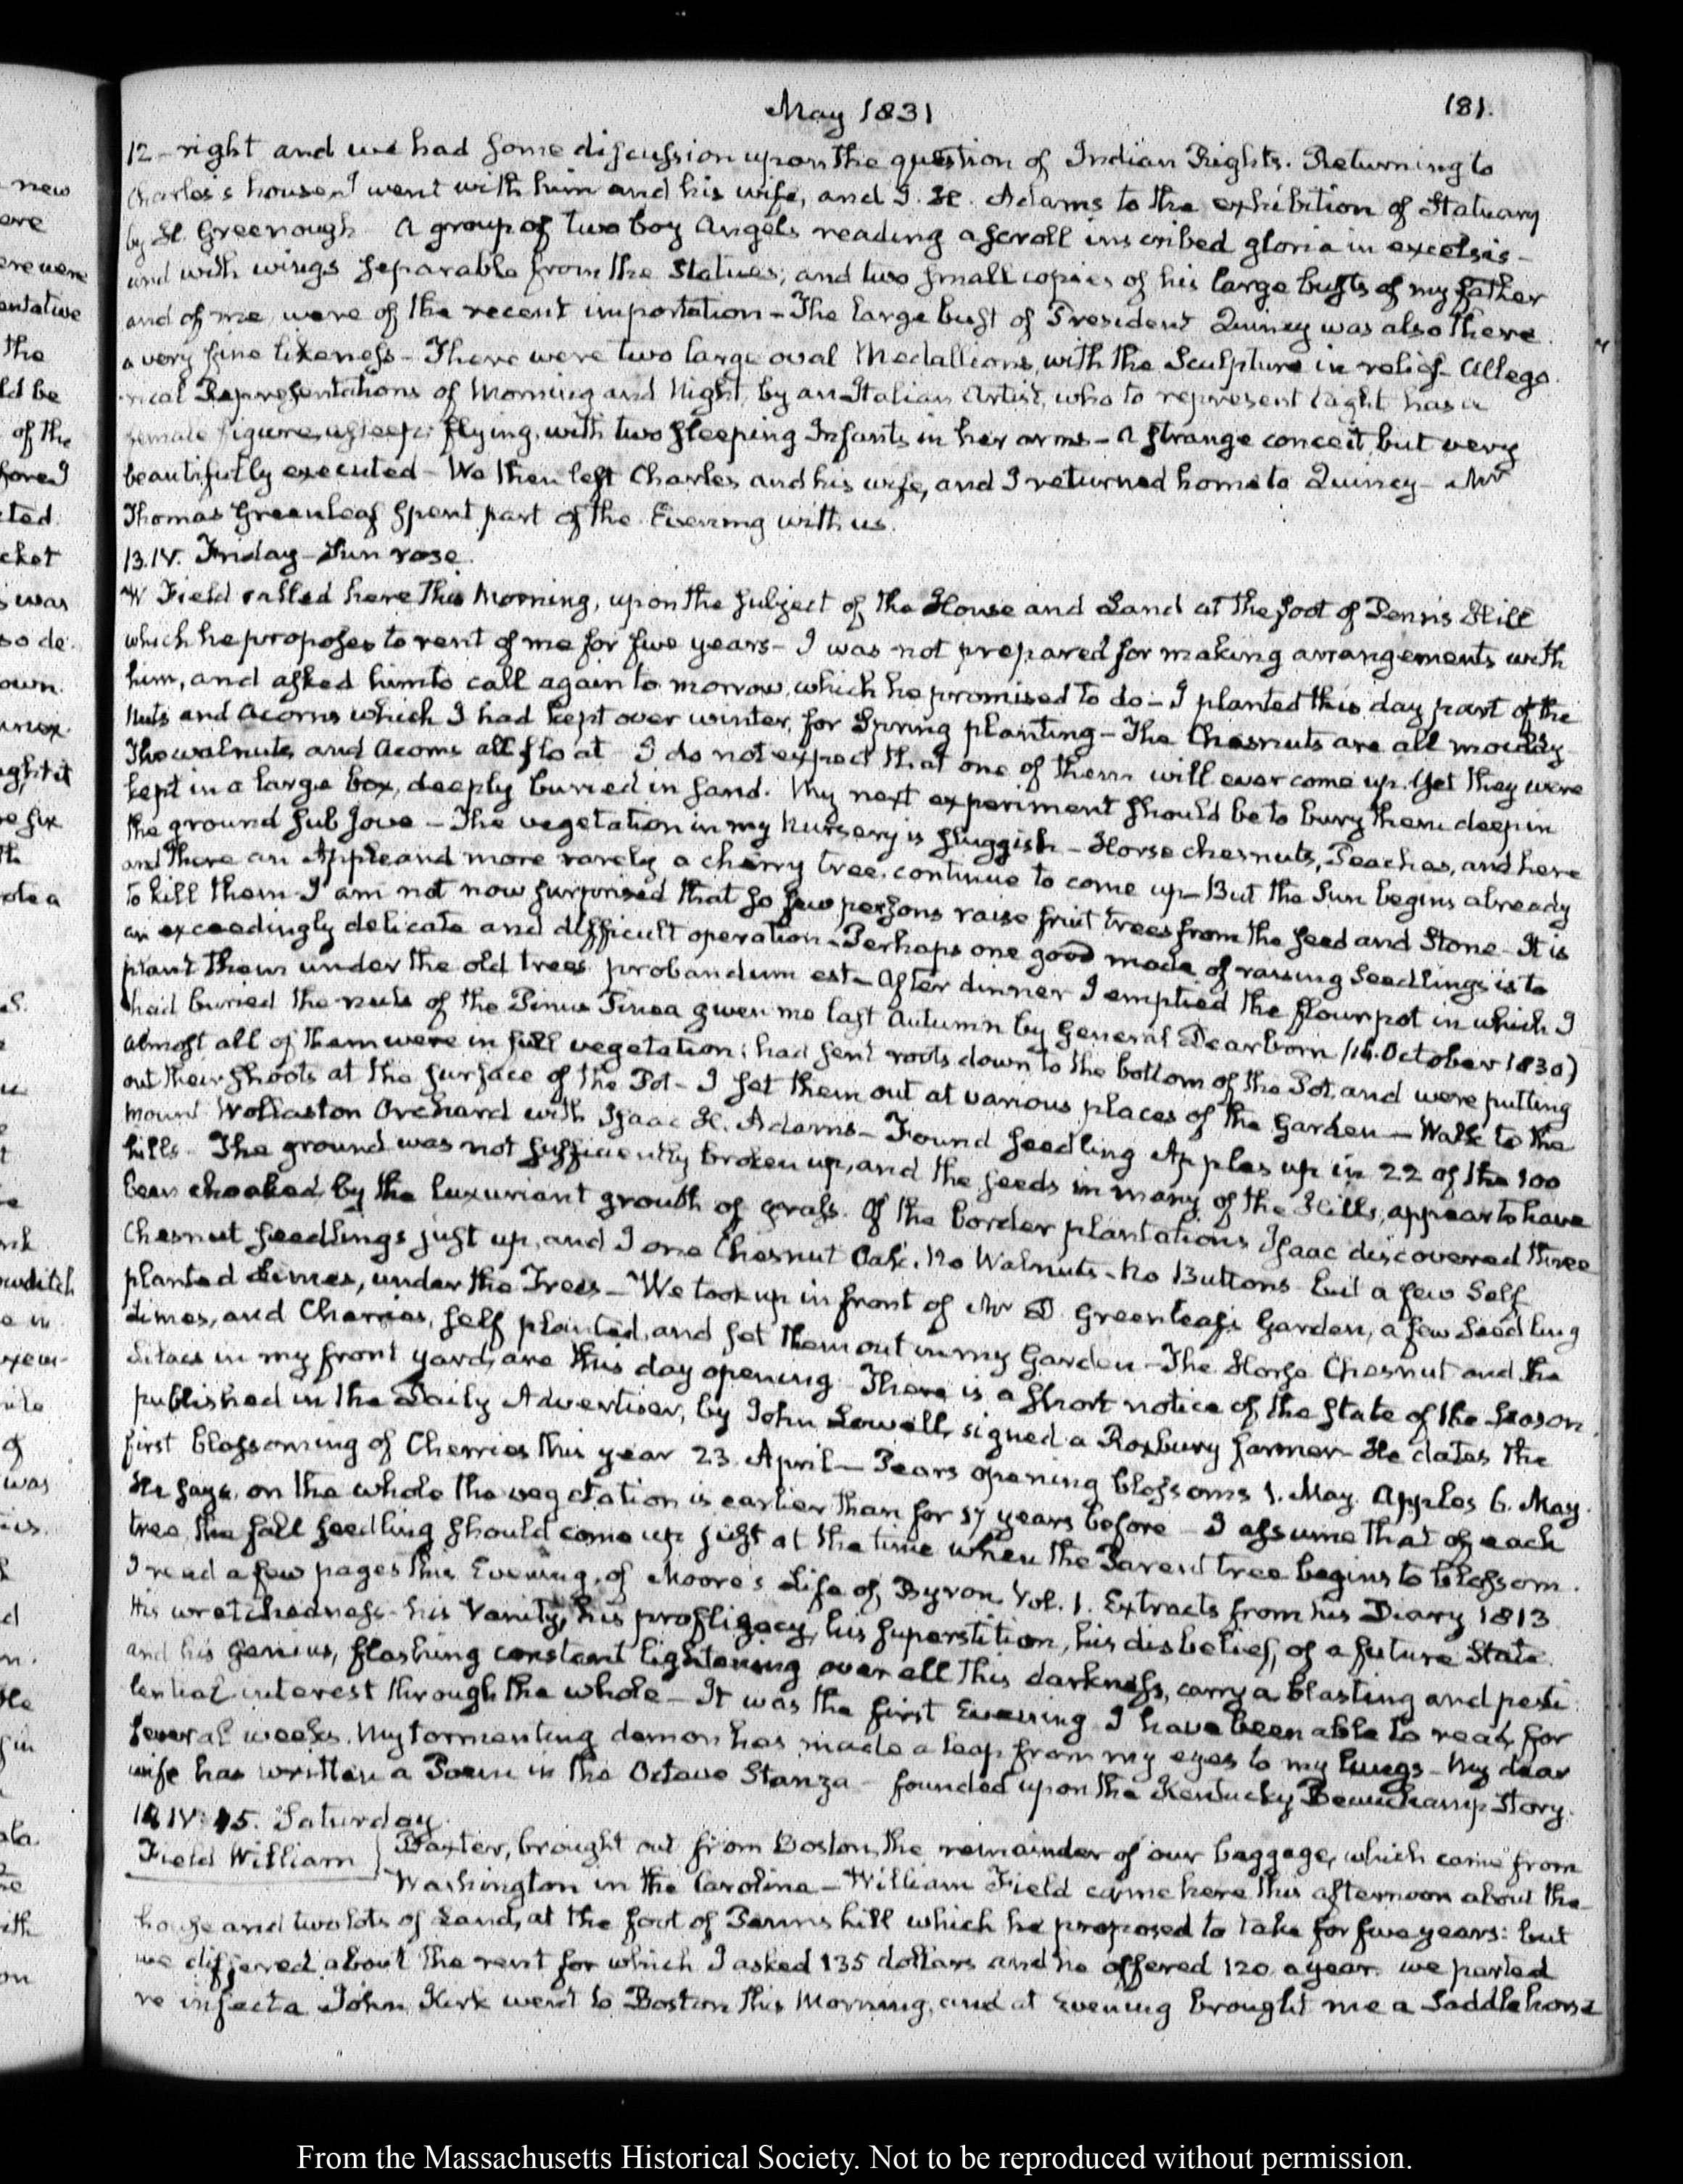 May 1831
181.
12 – right and we had some discussion upon the question of Indian Rights. Returning to
Charles's house, I went with him and his wife, and I. H. Adams to the exhibition of Statuary
by H. Greenough A group of two boy Angels reading a scroll inscribed gloria in excelsis –
and with wings separable from the Statues; and two small copies of his large busts of my father
and of me, were of the recent importation – The large bust of President Quincy was also there
a very fine likeness – There were two large oval Medallions, with the Sculpture in relief – Allego
rical Representations of Morning and Night, by an Italian Artist, who to represent Night has a
female figure, asleep; flying, with two sleeping Infants in her arms – A strange conceit, but very
beautifully executed – We then left Charles and his wife, and I returned home to Quincy – Mr
Thomas Greenleaf spent part of the Evening with us.
13. IV. Friday – Sun rose.
W Field called here this Morning, upon the subject of the House and Land at the foot of Penn's Hill
which he proposes to rent of me for five years – I was not prepared for making arrangements with
him, and asked him to call again to morrow, which he promised to do – I planted this day part of the
Nuts and Acorns which I had kept over winter, for Spring planting – The Chesnuts are all mouldy
The walnuts and Acorns all float I do not expect that one of them will ever come up. Yet they were
kept in a large box, deeply buried in sand. My next experiment should be to bury them deep in
the ground sub Jove – The vegetation in my Nursery is sluggish – Horse chesnuts, Peaches, and here
and there an Apple and more rarely a cherry tree, continue to come up – But the Sun begins already
to kill them – I am not now surprised that so few persons raise fruit trees from the seed and Stone – It is
an exceedingly delicate and difficult operation – Perhaps one good mode of raising Seedlings is to
plant them under the old trees probandum est – After dinner I emptied the flowerpot in which I
had buried the nuts of the Pinus Pinea given me last Autumn by General Dearborn (16. October 1830)
almost all of them were in full vegetation; had sent roots down to the bottom of the Pot, and were putting
out their shoots at the surface of the Pot – I set them out at various places of the Garden – Walk to the
Mount Wollaston Orchard with Isaac H. Adams – Found seedling Apples up in 22 of the 100
hills – The ground was not sufficiently broken up, and the seeds in many of the Hills, appear to have
been choaked by the luxuriant growth of grass. Of the border plantations Isaac discovered three
Chesnut seedlings just up, and I one Chesnut Oak. No Walnuts – No Buttons but a few Self
planted Limes, under the Trees – We took up in front of Mr D. Greenleaf's Garden, a few Seedling
Limes, and Cherries, self planted, and set them out in my Garden – The Horse Chesnut and the
Lilacs in my front yard, are this day opening – There is a short notice of the state of the Season
published in the Daily Advertiser, by John Lowell, signed a Roxbury farmer – He dates the
first blossoming of Cherries this year 23. April – Pears opening blossoms 1. May. Apples 6. May.
He says, on the whole the vegetation is earlier than for 17 years before – I assume that of each
tree, the fall seedling should come up just at the time when the Parent tree begins to blossom.
I read a few pages this Evening, of Moore's Life of Byron Vol. 1. Extracts from his Diary 1813
His wretchedness – his vanity, his profligacy, his superstition, his disbelief, of a future State
and his genius, flashing constant lightening over all this darkness, carry a blasting and pesti
lential interest through the whole – It was the first Evening I have been able to read, for
several weeks. My tormenting demon has made a leap from my eyes to my lungs – My dear
wife has written a Poem in the Octave Stanza – founded upon the Kentucky Beauchamp Story.
14. IV: 45. Saturday.
Field William
Baxter, brought out from Boston, the remainder of our baggage, which came from
Washington in the Carolina – William Field came here this afternoon about the
house and two lots of Land, at the foot of Penns hill which he proposed to take for five years: but
we differed about the rent for which I asked 135 dollars and he offered 120 a year. we parted
re infecta John Kirk went to Boston this Morning, and at Evening brought me a Saddle horse
new
ere
ere were
entative
the
ld be
of the
fore I
cted
cket
s was
so de
own.
ght it
re fix
th
was
From the Massachusetts Historical Society. Not to be reproduced without permission.